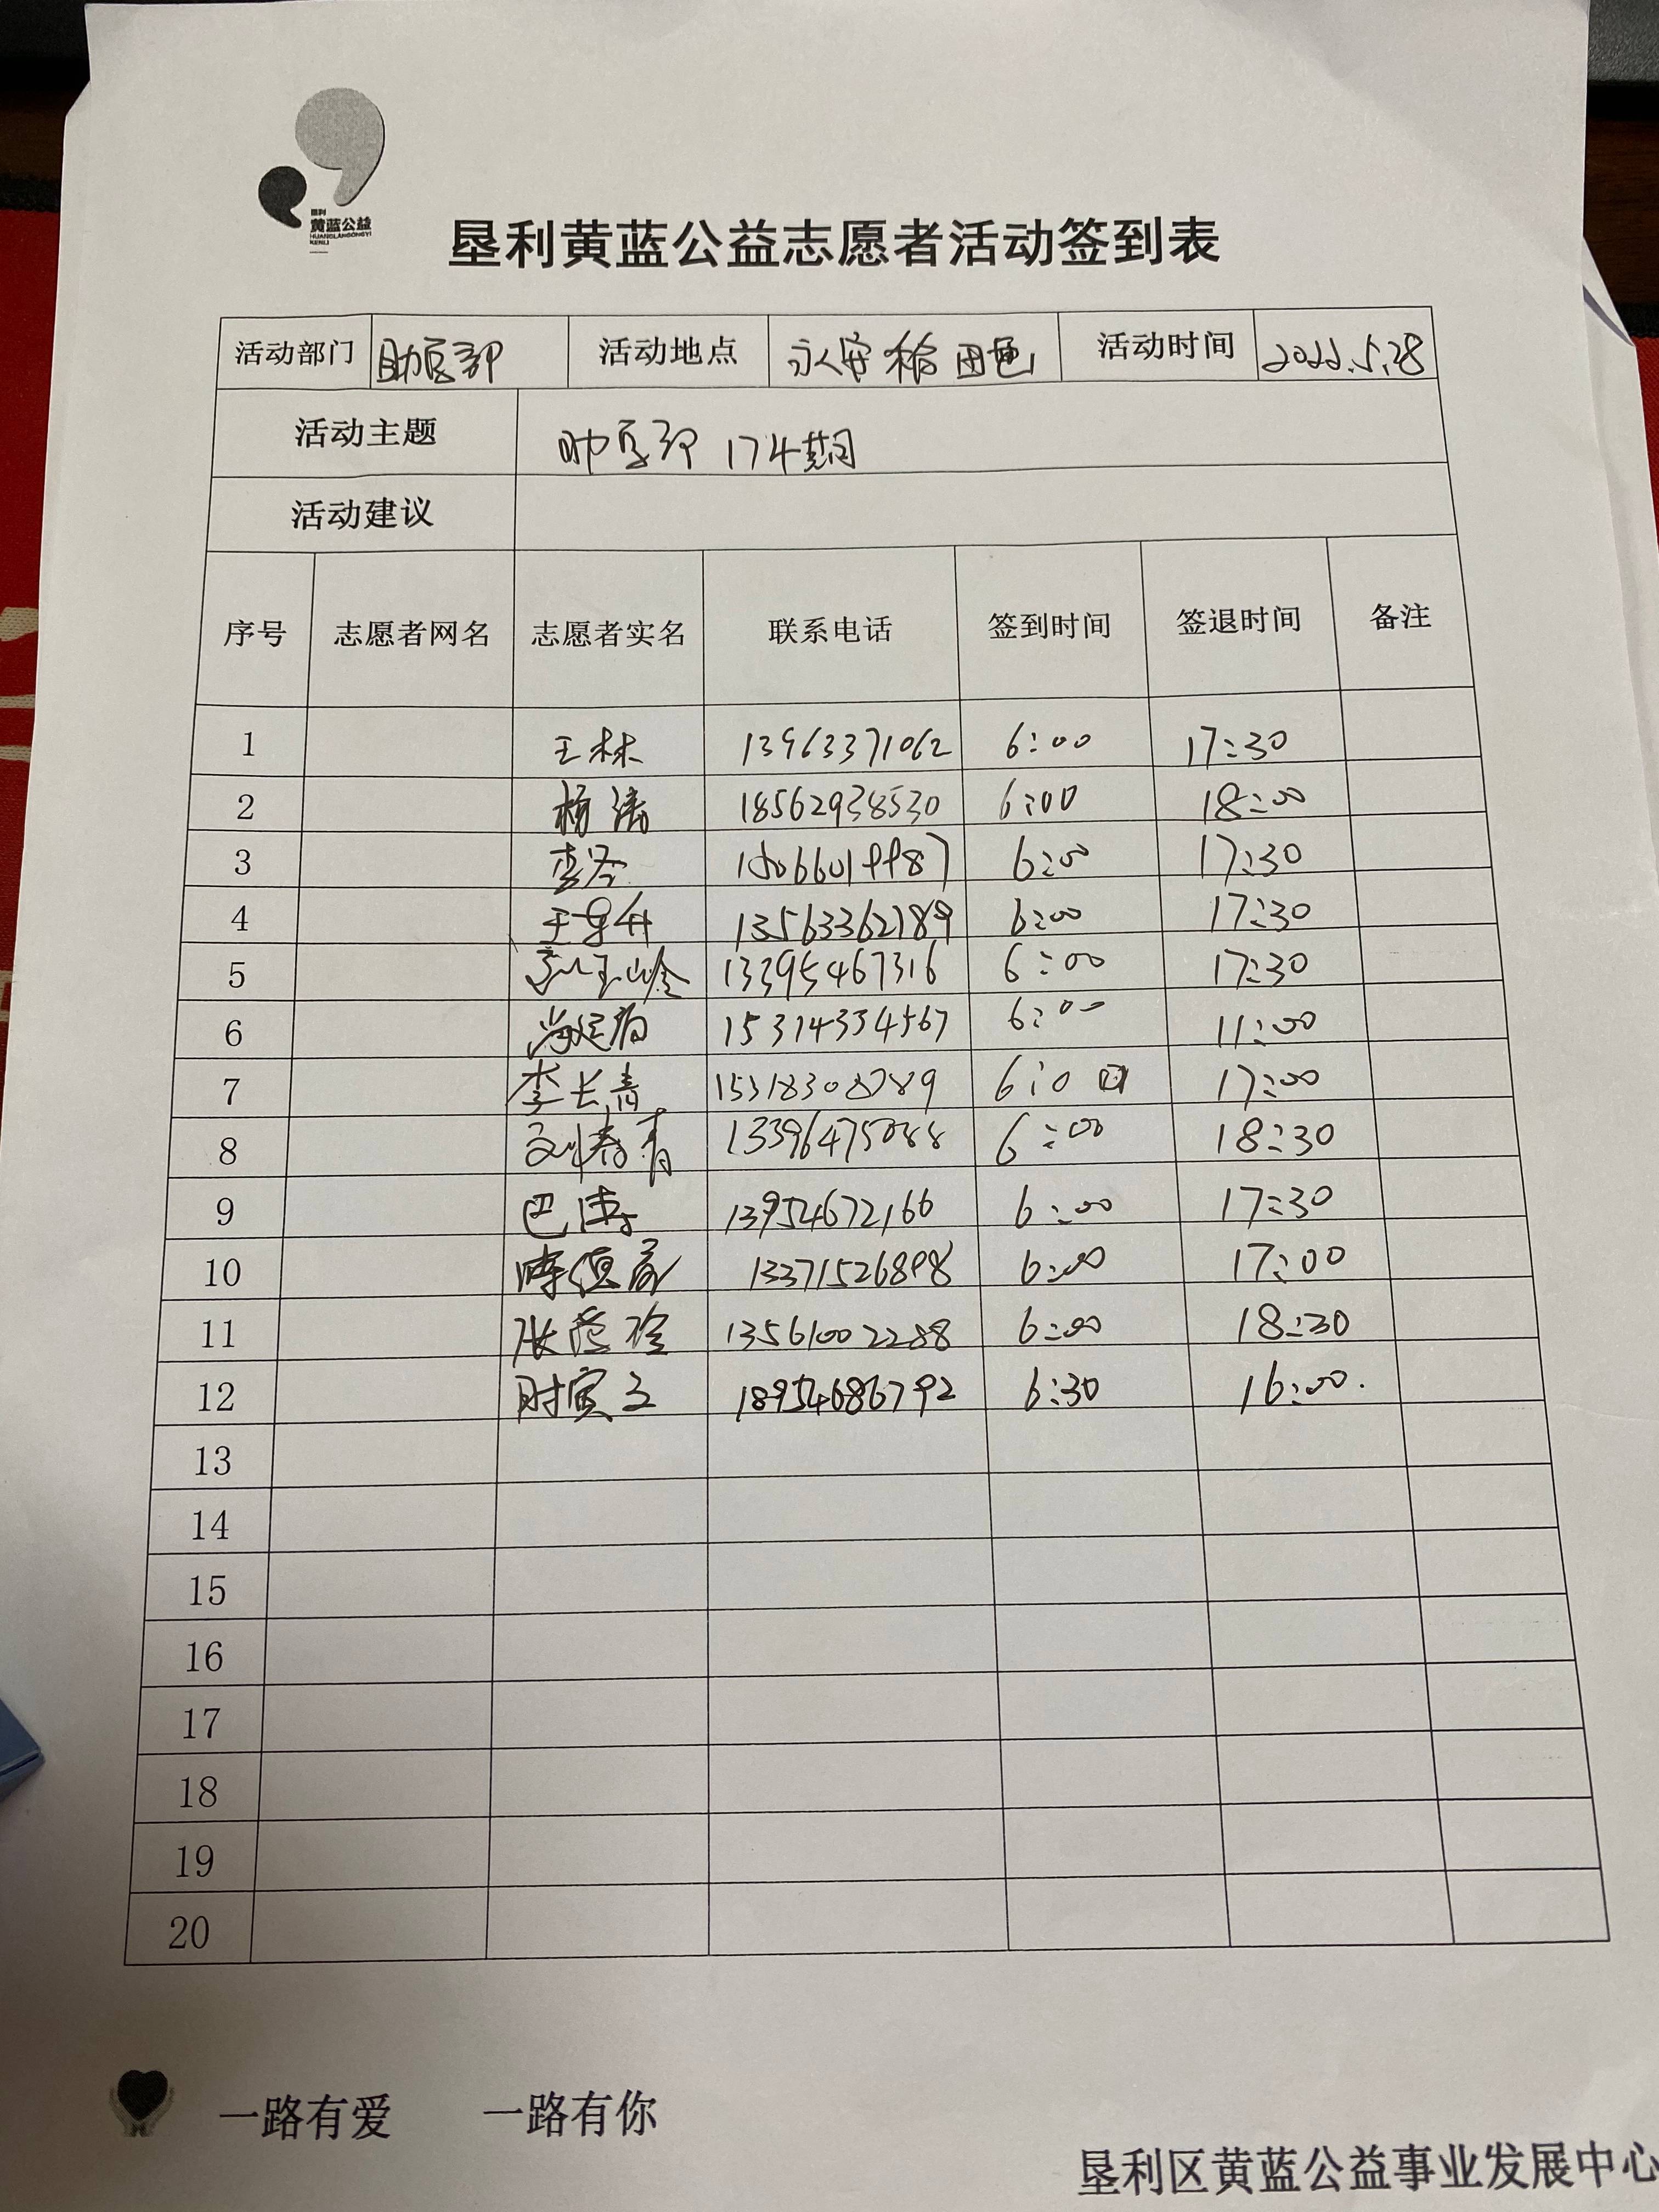 垦利
黄蓝公益
HUANGLANGONGYI
KENLI
垦利黄蓝公益志愿者活动签到表
活动部门 助医部 活动地点 永安稻田画 活动时间 2022.5.28
活动主题 助医部 174期
活动建议
序号 志愿者网名 志愿者实名 联系电话 签到时间 签退时间 备注
1 王林 13963371062 6:00 17:30
2 杨涛 18562938530 6:00 18:00
3 6:00 17:30
4 13563362189 6:00 17:30
5 13395467316 6:00 17:30
6 15314334567 6:00 11:00
7 李长青 15318308789 6:00 17:00
8 刘春青 13396475088 6:00 18:30
9 巴涛 13954672166 6:00 17:30
10 13371526898 6:00 17:00
11 13561002288 6:00 18:30
12 18954686792 6:30 16:00.
13
14
15
16
17
18
19
20
一路有爱 一路有你
垦利区黄蓝公益事业发展中心